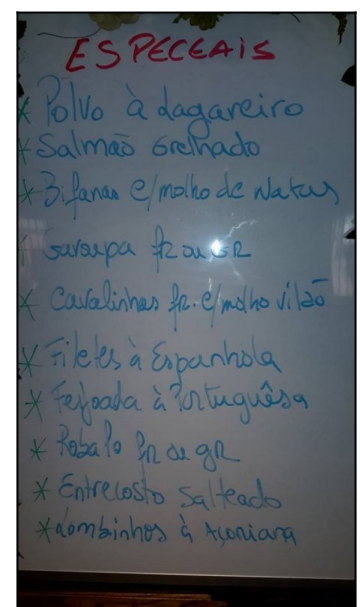 ESPECEAIS
* Polvo à Lagareiro
* Salmão Grelhado
* Bifanas c/molho de Natas
Garoupa fr ou GR
* Cavalinhas fr. c/molho vilão
* Filetes à Espanhola
* Feijoada à Portuguêsa
* Robalo fR ou gR
* Entrecosto Salteado
* Lombinhos à Açoriana